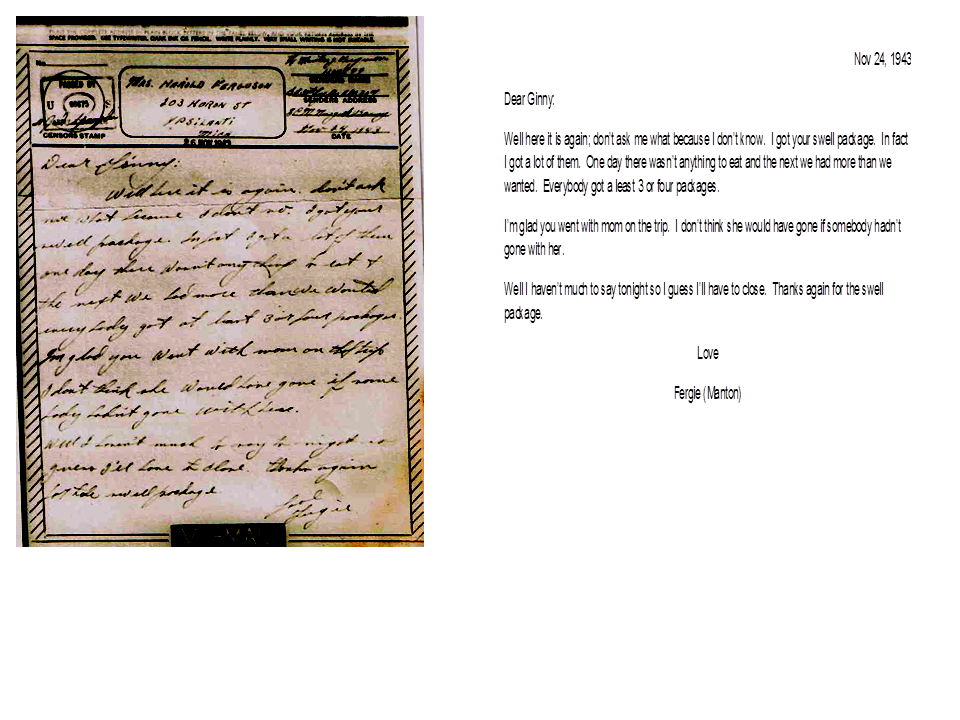 SPACE PROVIDED. USE TYPEWRITER, DARK INK OR PENCIL. WRITE PLAINLY. VERY SMALL WRITING IS NOT SUITABLE.
No.
PASSED BY
U S
CENSORS STAMP
MRS. HAROLD FERGUSON
203 HURON ST
YPSILANTI
MICH
26 NOV 1943
SENDERS ADDRESS
DATE
Dear Ginny:
Well here it is again. don't ask
me what because I don't no. I got your
swell package. In fact I got a lot of them
one day there wasn't anything to eat &
the next we had more than we wanted
everybody got at least 3 or four packages.
I'm glad you went with mom on the trip
I don't think she would have gone if some
body hadn't gone with her.
Well I haven't much to say to night so
guess I'll have to close. Thanks again
for the swell package
Love
Fergie
V-MAIL
Nov 24, 1943
Dear Ginny:
Well here it is again; don't ask me what because I don't know. I got your swell package. In fact
I got a lot of them. One day there wasn't anything to eat and the next we had more than we
wanted. Everybody got a least 3 or four packages.
I'm glad you went with mom on the trip. I don't think she would have gone if somebody hadn't
gone with her.
Well I haven't much to say tonight so I guess I'll have to close. Thanks again for the swell
package.
Love
Fergie (Manton)